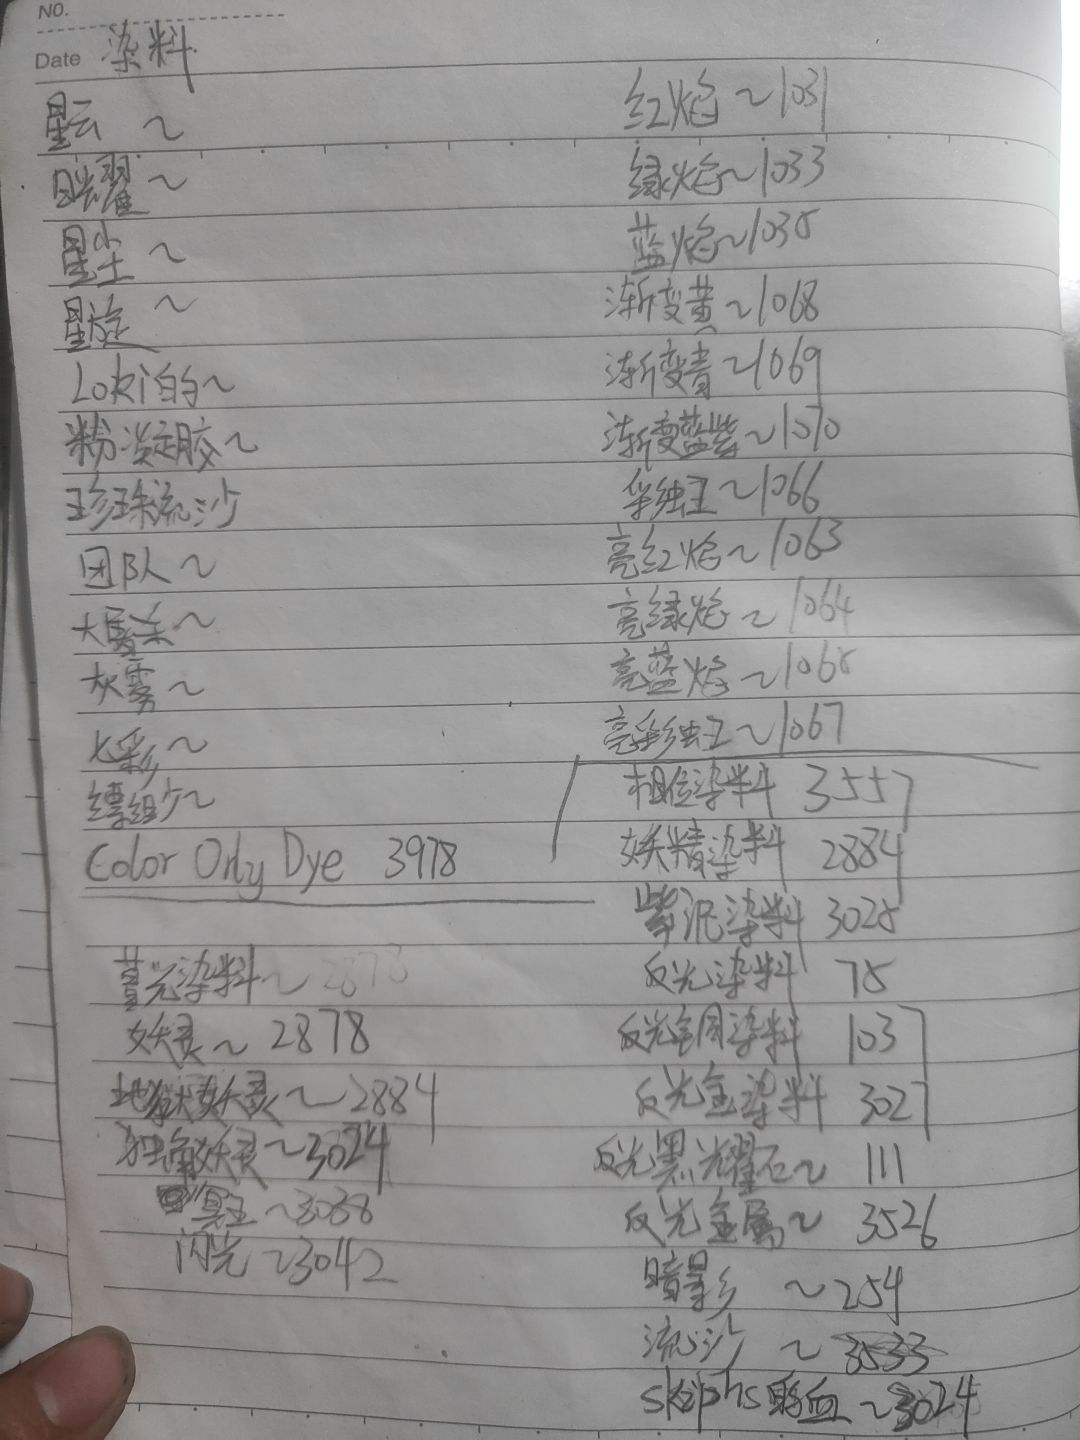 NO.
Date 染料
星云 ~
日耀 ~
星尘 ~
星旋 ~
Loki的~
粉凝胶~
珍珠流沙
团队 ~
大屠杀~
灰雾 ~
七彩 ~
缥缈~
Color Only Dye 3978
暮光染料~ 2878
妖灵~ 2878
地狱妖灵~2884
妖灵~3024
冥王~3038
闪光~3042
红焰~1031
绿焰~1033
蓝焰~1035
渐变黄~1068
渐变青~1069
渐变蓝紫~1070
彩虹王~1066
亮红焰~1063
亮绿焰~1064
亮蓝焰~1065
亮彩虹王~1067
相位染料 3557
妖精染料 2884
紫泥染料 3025
反光染料 75
反光染料 1037
反光金染料 3027
反光黑耀石~ 111
反光金属~ 3526
暗影 ~254
流沙 ~ 3533
~3024